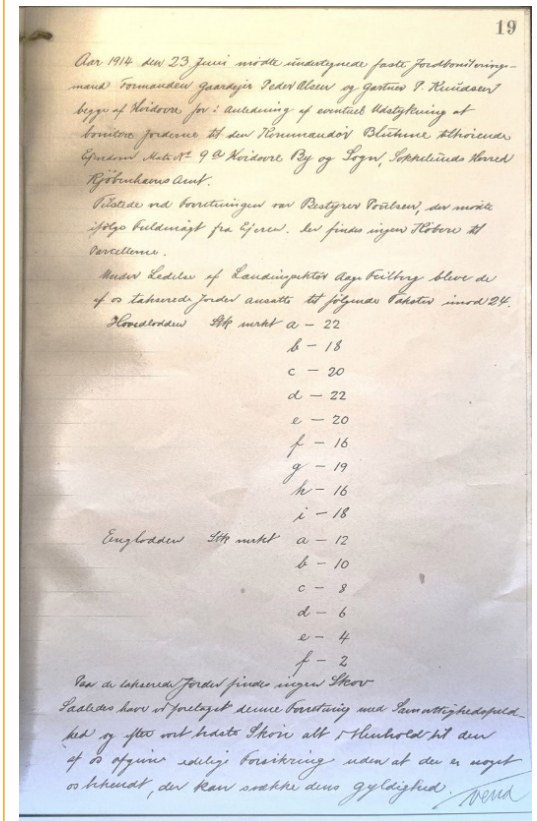 19
Aar 1914 den 23 Juni mødte undertegnede faste Jordboniterings-
mænd Formanden Gaardejer Peder Olsen og Gartner P. Knudsen
begge af Hvidovre for i Anledning af eventuel Udstykning at
bonitere Jorderne til den Kommandør Bluhme tilhørende
Ejendom Matr № 9 a Hvidovre By og Sogn, Sokkelunds Herred
Kjøbenhavns Amt.
Tilstede ved Forretningen var Bestyrer Poulsen, der mødte
ifølge Fuldmagt fra Ejeren. Der findes ingen Købere til
Parcellerne.
Under Ledelse af Landinspektør Aage Feilberg bleve de
af os takserede Jorder ansatte til følgende Takster imod 24.
Hovedlodden Stk mrkt a – 22
b – 18
c – 20
d – 22
e – 20
f – 16
g – 19
h – 16
i – 18
Englodden Stk mrkt a – 12
b – 10
c – 8
d – 6
e – 4
f – 2
Paa de takserede Jorder findes ingen Skov
Saaledes have vi foretaget denne Forretning med Samvittighedsfuld-
hed og efter vort bedste Skøn alt i Henhold til den
af os afgivne edelige Forsikring uden at der er noget
os bekendt, der kan svække dens gyldighed.
vend